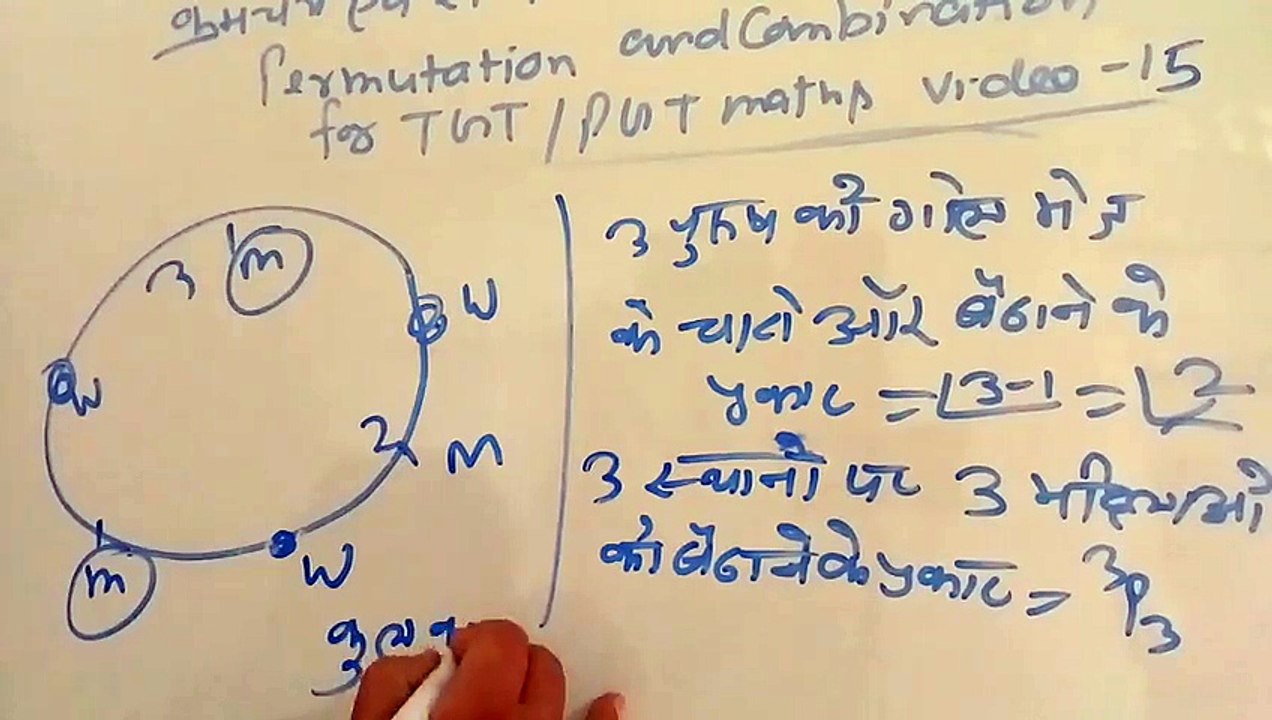 Permutation and Combination
for TGT / PGT maths video - 15
3 m
W
W
2 M
m
W
3 पुरुष को गोल मेज
के चारो ओर बैठाने के
प्रकार = |3-1 = |2
3 स्थानो पर 3 महिलाओ
को बैठाने के प्रकार = ³P₃
कुल